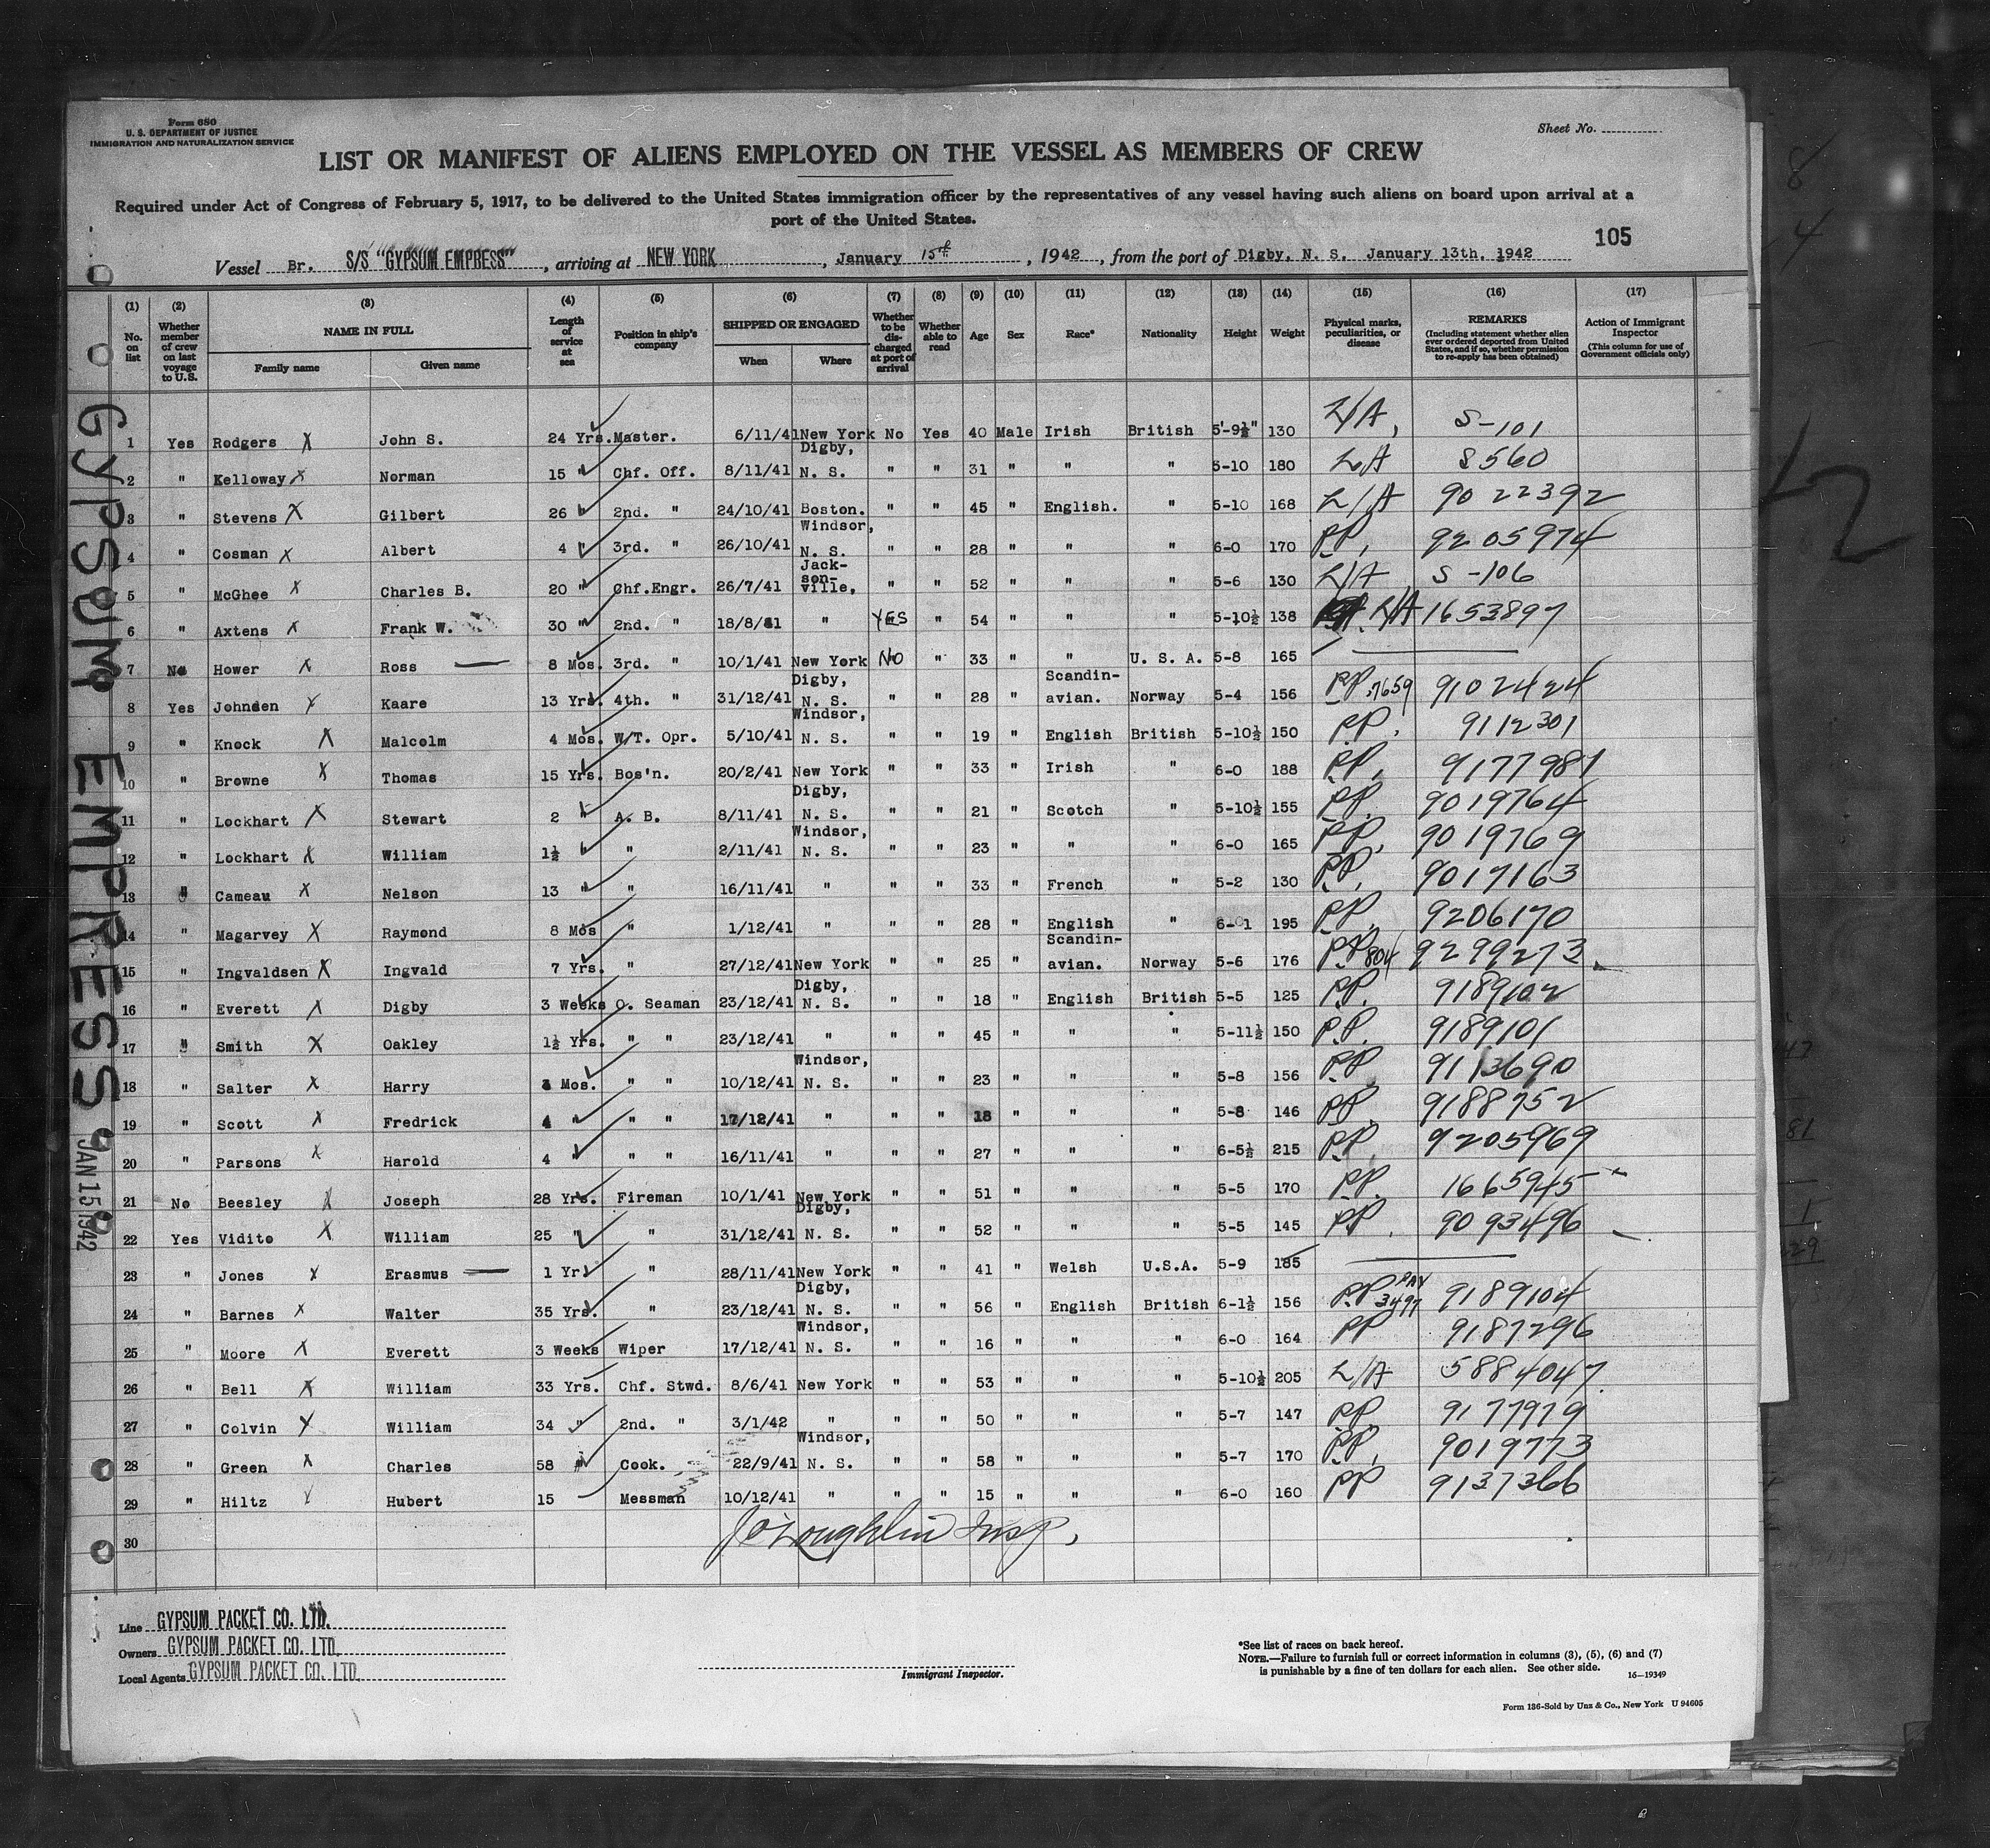 Form 680
U. S. DEPARTMENT OF JUSTICE
IMMIGRATION AND NATURALIZATION SERVICE
Sheet No.
LIST OR MANIFEST OF ALIENS EMPLOYED ON THE VESSEL AS MEMBERS OF CREW
Required under Act of Congress of February 5, 1917, to be delivered to the United States immigration officer by the representatives of any vessel having such aliens on board upon arrival at a
port of the United States.
105
Vessel Br. S/S "GYPSUM EMPRESS", arriving at NEW YORK, January 15th, 1942, from the port of Digby, N. S. January 13th, 1942
(1) No. on list (2) Whether member of crew on last voyage to U.S. (3) NAME IN FULL Family name Given name (4) Length of service at sea (5) Position in ship's company (6) SHIPPED OR ENGAGED When Where (7) Whether to be discharged at port of arrival (8) Whether able to read (9) Age (10) Sex (11) Race* (12) Nationality (13) Height (14) Weight (15) Physical marks, peculiarities, or disease (16) REMARKS (Including statement whether alien ever ordered deported from United States, and if so, whether permission to re-apply has been obtained) (17) Action of Immigrant Inspector (This column for use of Government officials only)
1 Yes Rodgers X John S. 24 Yrs. Master. 6/11/41 New York No Yes 40 Male Irish British 5'-9½" 130 L/A, S-101
2 " Kelloway X Norman 15 " Chf. Off. 8/11/41 Digby, N. S. " " 31 " " " 5-10 180 L/A S560
3 " Stevens X Gilbert 26 " 2nd. " 24/10/41 Boston. " " 45 " English. " 5-10 168 L/A 9022392
4 " Cosman X Albert 4 " 3rd. " 26/10/41 Windsor, N. S. " " 28 " " " 6-0 170 P.P, 9205974
5 " McGhee X Charles B. 20 " Chf.Engr. 26/7/41 Jack-son-ville, " " 52 " " " 5-6 130 L/A S-106
6 " Axtens X Frank W. 30 " 2nd. " 18/8/41 " YES " 54 " " " 5-10½ 138 L/A 1653897
7 No Hower X Ross 8 Mos. 3rd. " 10/1/41 New York NO " 33 " " U. S. A. 5-8 165
8 Yes Johnsen X Kaare 13 Yrs. 4th. " 31/12/41 Digby, N. S. " " 28 " Scandin-avian. Norway 5-4 156 P.P. 7659 9102424
9 " Knock X Malcolm 4 Mos. W/T. Opr. 5/10/41 Windsor, N. S. " " 19 " English British 5-10½ 150 P.P. 9112301
10 " Browne X Thomas 15 Yrs. Bos'n. 20/2/41 New York " " 33 " Irish " 6-0 188 P.P, 9177981
11 " Lockhart X Stewart 2 " A. B. 8/11/41 Digby, N. S. " " 21 " Scotch " 5-10½ 155 P.P. 9019764
12 " Lockhart X William 1½ " " 2/11/41 Windsor, N. S. " " 23 " " " 6-0 165 P.P, 9019769
13 " Cameau X Nelson 13 " " 16/11/41 " " " 33 " French " 5-2 130 P.P, 9017163
14 " Magarvey X Raymond 8 Mos " 1/12/41 " " " 28 " English " 6-1 195 P.P. 9206170
15 " Ingvaldsen X Ingvald 7 Yrs. " 27/12/41 New York " " 25 " Scandin-avian. Norway 5-6 176 P.P. 804 9299273
16 " Everett X Digby 3 Weeks O. Seaman 23/12/41 Digby, N. S. " " 18 " English British 5-5 125 P.P. 9189102
17 " Smith X Oakley 1½ Yrs. " " 23/12/41 " " " 45 " " " 5-11½ 150 P.P. 9189101
18 " Salter X Harry Mos. " " 10/12/41 Windsor, N. S. " " 23 " " " 5-8 156 P.P, 9113690
19 " Scott X Fredrick 4 " " " 17/12/41 " " " 18 " " " 5-8 146 P.P, 9188752
20 " Parsons X Harold 4 " " " 16/11/41 " " " 27 " " " 6-5½ 215 P.P. 9205969
21 No Beesley X Joseph 28 Yrs. Fireman 10/1/41 New York " " 51 " " " 5-5 170 P.P. 1665945
22 Yes Vidito X William 25 " " 31/12/41 Digby, N. S. " " 52 " " " 5-5 145 P.P. 9093496
23 " Jones X Erasmus 1 Yr. " 28/11/41 New York " " 41 " Welsh U.S.A. 5-9 185
24 " Barnes X Walter 35 Yrs. " 23/12/41 Digby, N. S. " " 56 " English British 6-1½ 156 P.P. 3497 9189104
25 " Moore X Everett 3 Weeks Wiper 17/12/41 Windsor, N. S. " " 16 " " " 6-0 164 PP 9187296
26 " Bell X William 33 Yrs. Chf. Stwd. 8/6/41 New York " " 53 " " " 5-10½ 205 L/A 5884047
27 " Colvin X William 34 " 2nd. " 3/1/42 " " " 50 " " " 5-7 147 PP 9177979
28 " Green X Charles 58 " Cook. 22/9/41 Windsor, N. S. " " 58 " " " 5-7 170 P.P, 9019773
29 " Hiltz X Hubert 15 Messman 10/12/41 " " " 15 " " " 6-0 160 PP 9137366
30
J O'Loughlin Insp,
GYPSUM EMPRESS
JAN 15 1942
Line GYPSUM PACKET CO. LTD.
Owners GYPSUM PACKET CO. LTD.
Local Agents GYPSUM PACKET CO. LTD.
Immigrant Inspector.
*See list of races on back hereof.
NOTE.—Failure to furnish full or correct information in columns (3), (5), (6) and (7)
is punishable by a fine of ten dollars for each alien. See other side.
16—19349
Form 136-Sold by Unz & Co., New York U 94605